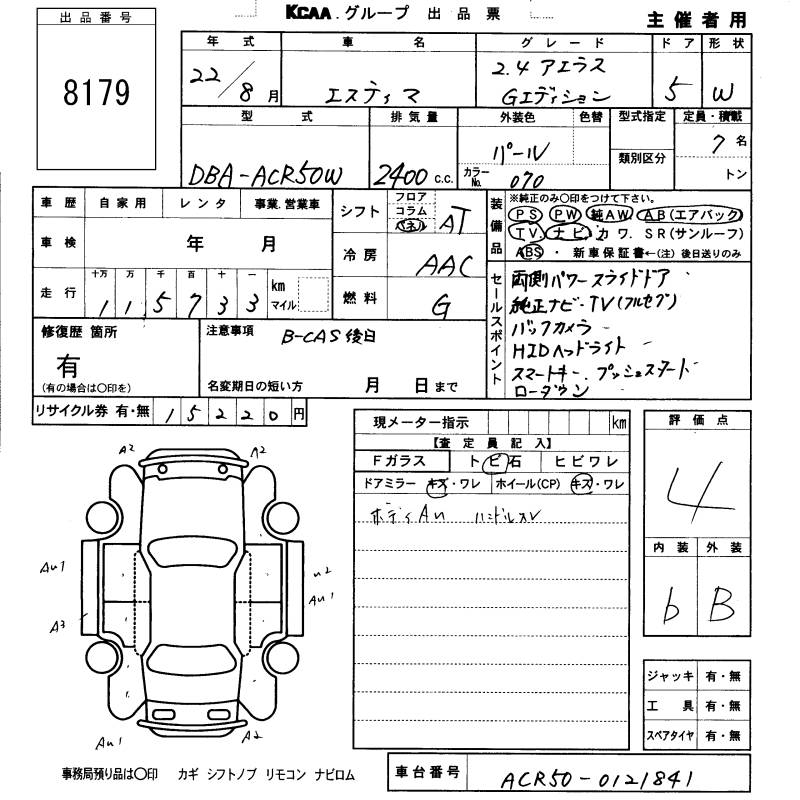 出品番号
8179
KCAA グループ 出品票
主催者用
年式 車名 グレード ドア 形状
22/8月 エスティマ 2.4 アエラス Gエディション 5 W
型式 排気量 外装色 色替 型式指定 定員・積載
DBA-ACR50W 2400 c.c. パール 7名
カラーNo. 070 類別区分 トン
車歴 自家用 レンタ 事業、営業車
車検 年 月
走行 十万 万 千 百 十 一 km マイル
1 1 5 7 3 3
シフト フロア コラム パネ AT
冷房 AAC
燃料 G
装備品 ※純正のみ〇印をつけて下さい。
PS PW 純AW AB(エアバック)
TV. ナビ. カワ. SR(サンルーフ)
ABS ・ 新車保証書←(注)後日送りのみ
セールスポイント
両側パワースライドドア
純正ナビ・TV(フルセグ)
バックカメラ
HIDヘッドライト
スマートキー、プッシュスタート
ローダウン
修復歴 箇所
有
(有の場合は〇印を)
注意事項 B-CAS後日
名変期日の短い方 月 日まで
リサイクル券 有・無 15220円
現メーター指示 km
【査定員記入】
Fガラス トビ石 ヒビワレ
ドアミラー キズ・ワレ ホイール(CP) キズ・ワレ
ボディAu ハンドルスレ
評価点
4
内装 外装
b B
ジャッキ 有・無
工具 有・無
スペアタイヤ 有・無
A2 A2
Au1
A3
u2
Au1
Au1 A2
事務局預り品は〇印 カギ シフトノブ リモコン ナビロム
車台番号 ACR50-0121841